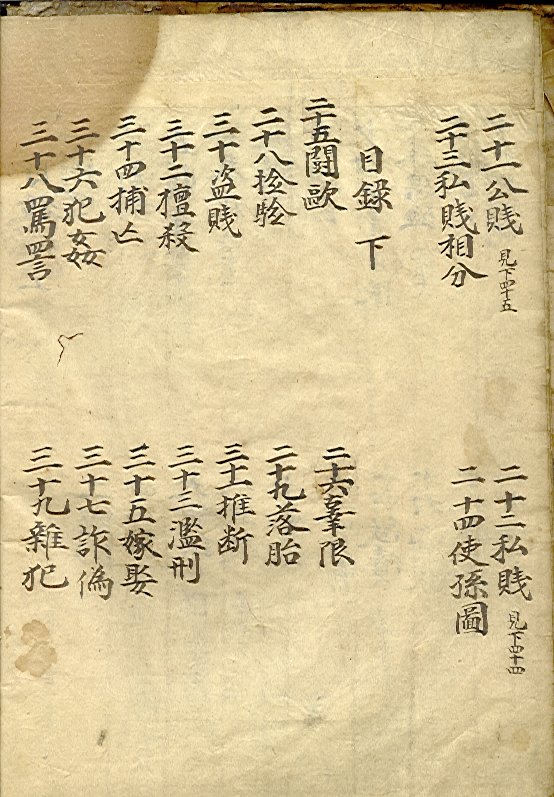 二十一公賎 見下四十五
二十二私賎 見下四十四
二十三私賎相分
二十四使孫圖
目録 下
二十五闘歐
二十六辜限
二十八捡驗
二十九落胎
三十盗賎
三十一推断
三十二擅殺
三十三濫刑
三十四捕亡
三十五嫁娶
三十六犯姦
三十七詐偽
三十八罵詈
三十九雜犯